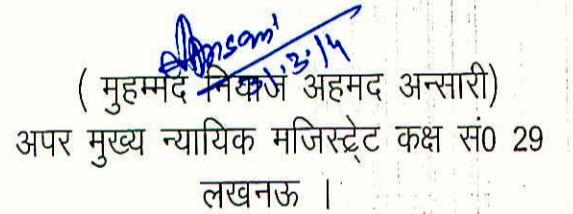 ( मुहम्मद नियाज अहमद अन्सारी)
अपर मुख्य न्यायिक मजिस्ट्रेट कक्ष सं0 29
लखनऊ ।